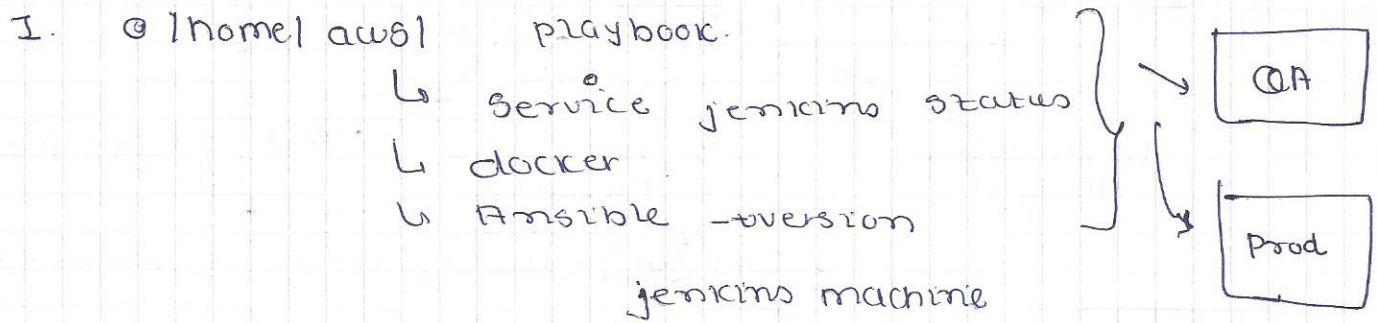 I. @ /home/aws/ playbook.
↳ service jenkins status
QA
↳ docker
↳ Ansible --version
Prod
jenkins machine